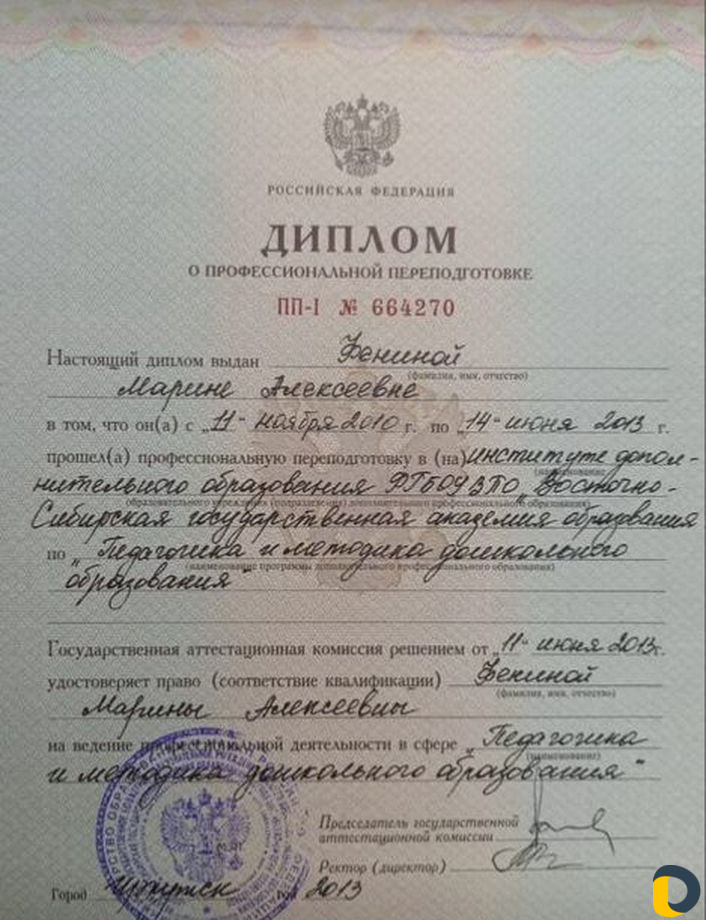 РОССИЙСКАЯ ФЕДЕРАЦИЯ
ДИПЛОМ
О ПРОФЕССИОНАЛЬНОЙ ПЕРЕПОДГОТОВКЕ
ПП-I № 664270
Настоящий диплом выдан
(фамилия, имя, отчество)
Марине Алексеевне
в том, что он(а) с „11" ноября 2010 г. по „14" июня 2013 г.
прошел(а) профессиональную переподготовку в (на) институте допол-
(наименование
нительного образования „Восточно-
образовательного учреждения (подразделения) дополнительного профессионального образования)
Сибирская государственная академия образования
по „Педагогика и методика дошкольного
(наименование программы дополнительного профессионального образования)
образования"
Государственная аттестационная комиссия решением от „11" июня 2013г.
удостоверяет право (соответствие квалификации)
(фамилия, имя, отчество)
Марины Алексеевны
на ведение профессиональной деятельности в сфере „Педагогика
(наименование)
и методика дошкольного образования"
Председатель государственной
аттестационной комиссии
Ректор (директор)
Город Иркутск год 2013